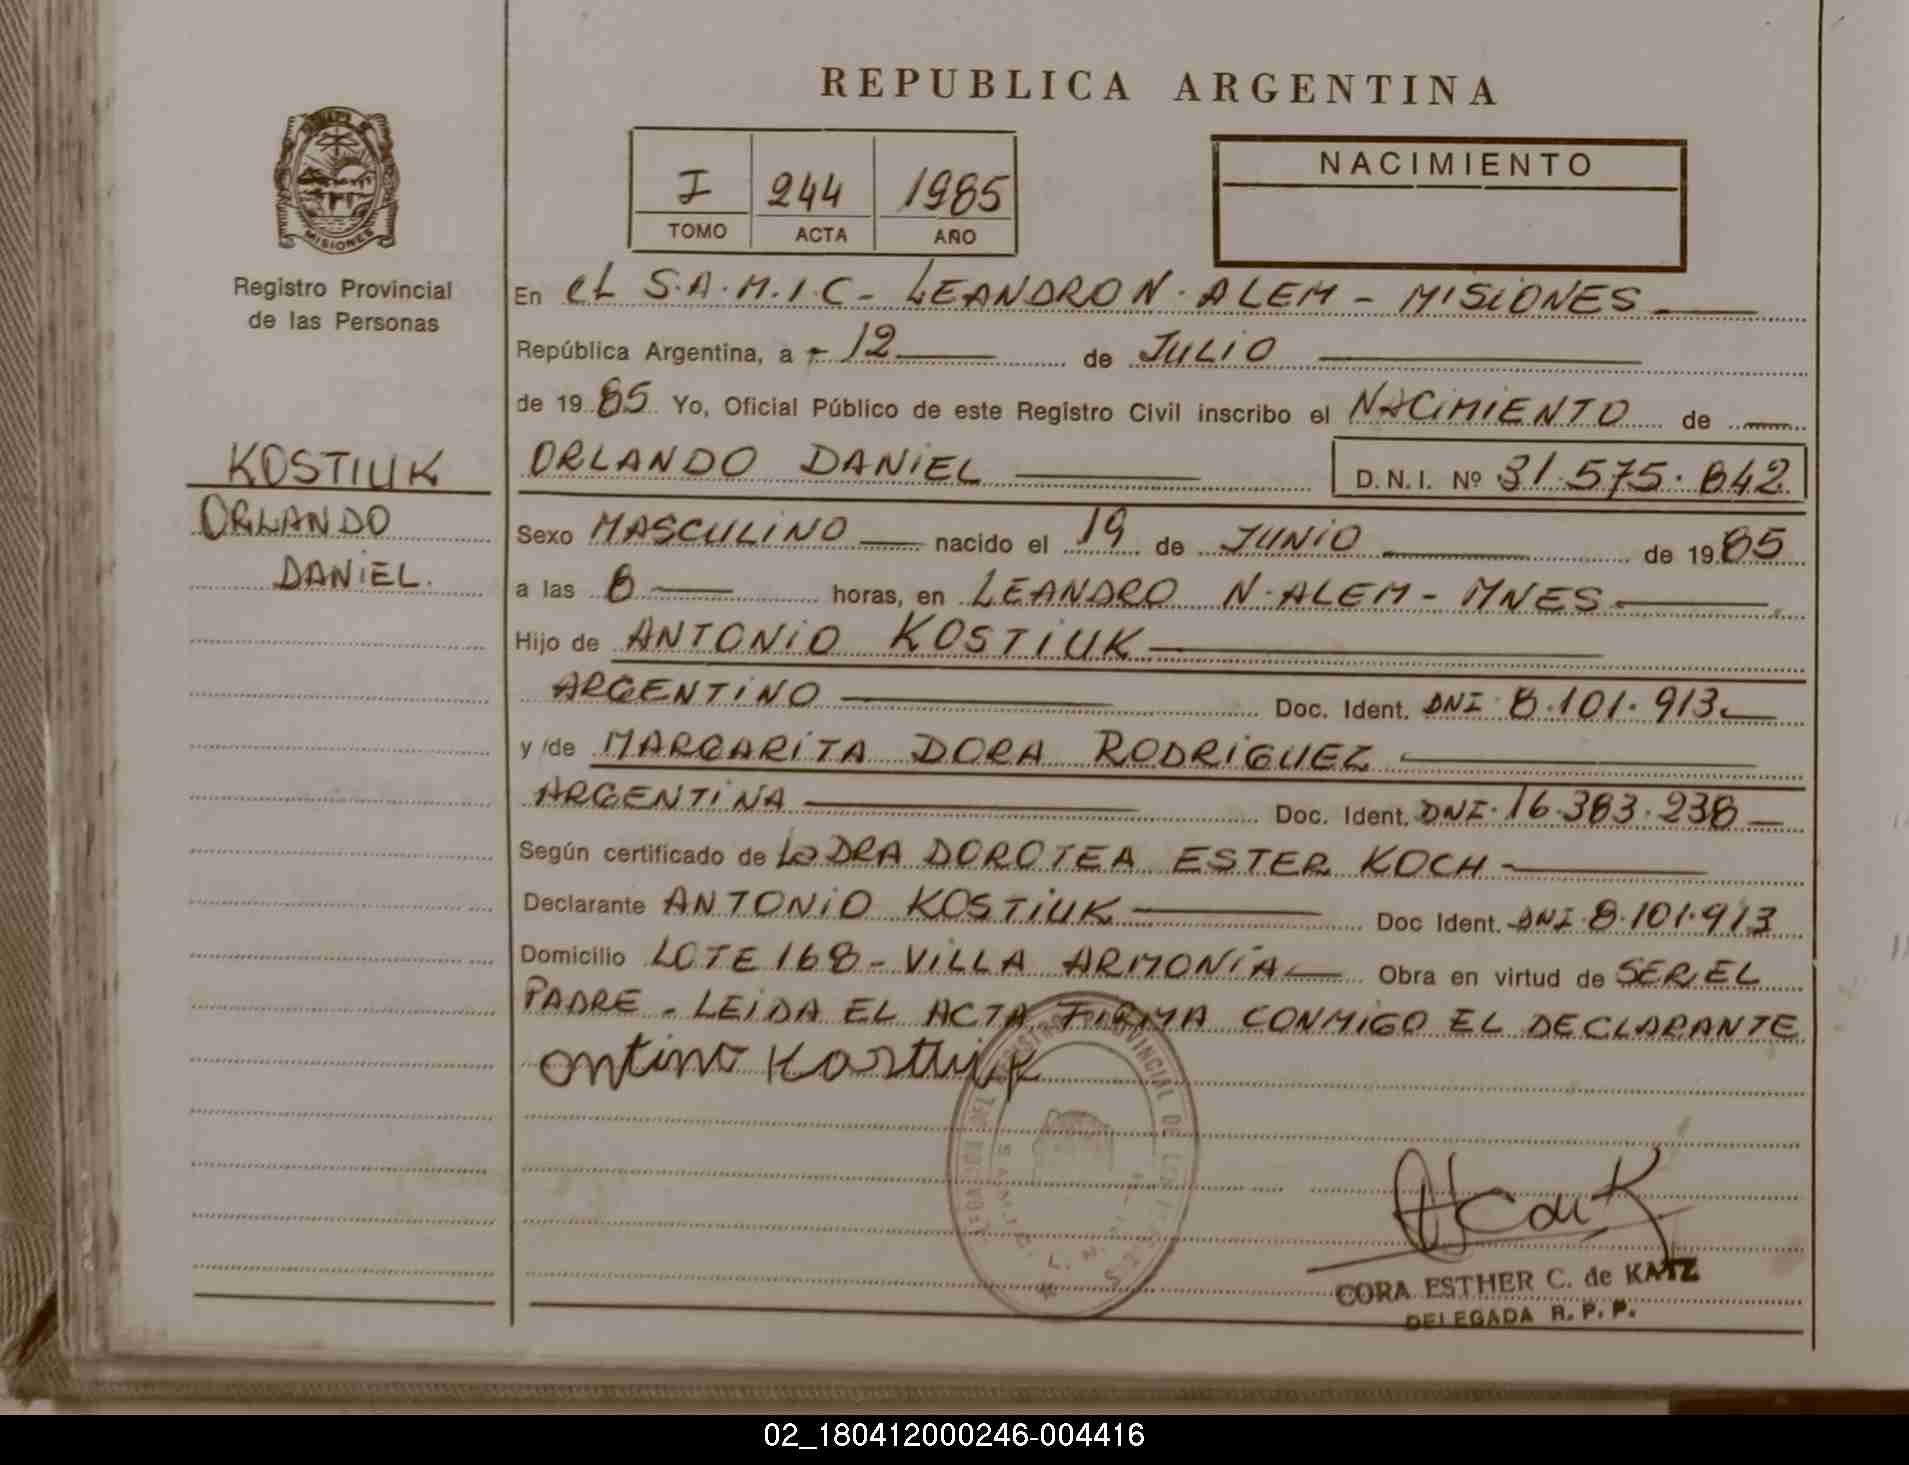 REPUBLICA ARGENTINA
I 244 1985
TOMO ACTA AÑO
NACIMIENTO
MISIONES
Registro Provincial
de las Personas
KOSTIUK
ORLANDO
DANIEL.
En EL S.A.M.I.C - LEANDRO N. ALEM - MISIONES
República Argentina, a - 12 de JULIO
de 1985 Yo, Oficial Público de este Registro Civil inscribo el NACIMIENTO de
ORLANDO DANIEL D.N.I. Nº 31.575.842
Sexo MASCULINO nacido el 19 de JUNIO de 1985
a las 8 horas, en LEANDRO N. ALEM - MNES
Hijo de ANTONIO KOSTIUK
ARGENTINO Doc. Ident. DNI 8.101.913
y/de MARGARITA DORA RODRIGUEZ
ARGENTINA Doc. Ident. DNI. 16.383.238
Según certificado de LA DRA DOROTEA ESTER KOCH
Declarante ANTONIO KOSTIUK Doc Ident. DNI 8.101.913
Domicilio LOTE 168 - VILLA ARMONÍA Obra en virtud de SER EL
PADRE - LEIDA EL ACTA FIRMA CONMIGO EL DECLARANTE
CORA ESTHER C. de KATZ
DELEGADA R. P. P.
02_180412000246-004416